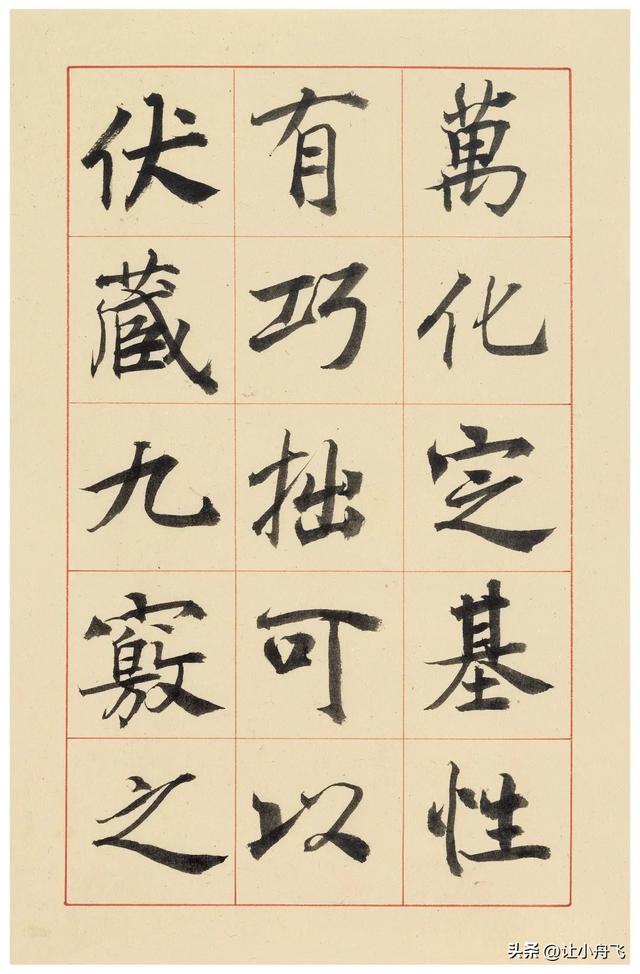 萬化定基性
有巧拙可以
伏藏九竅之
头条 @让小舟飞